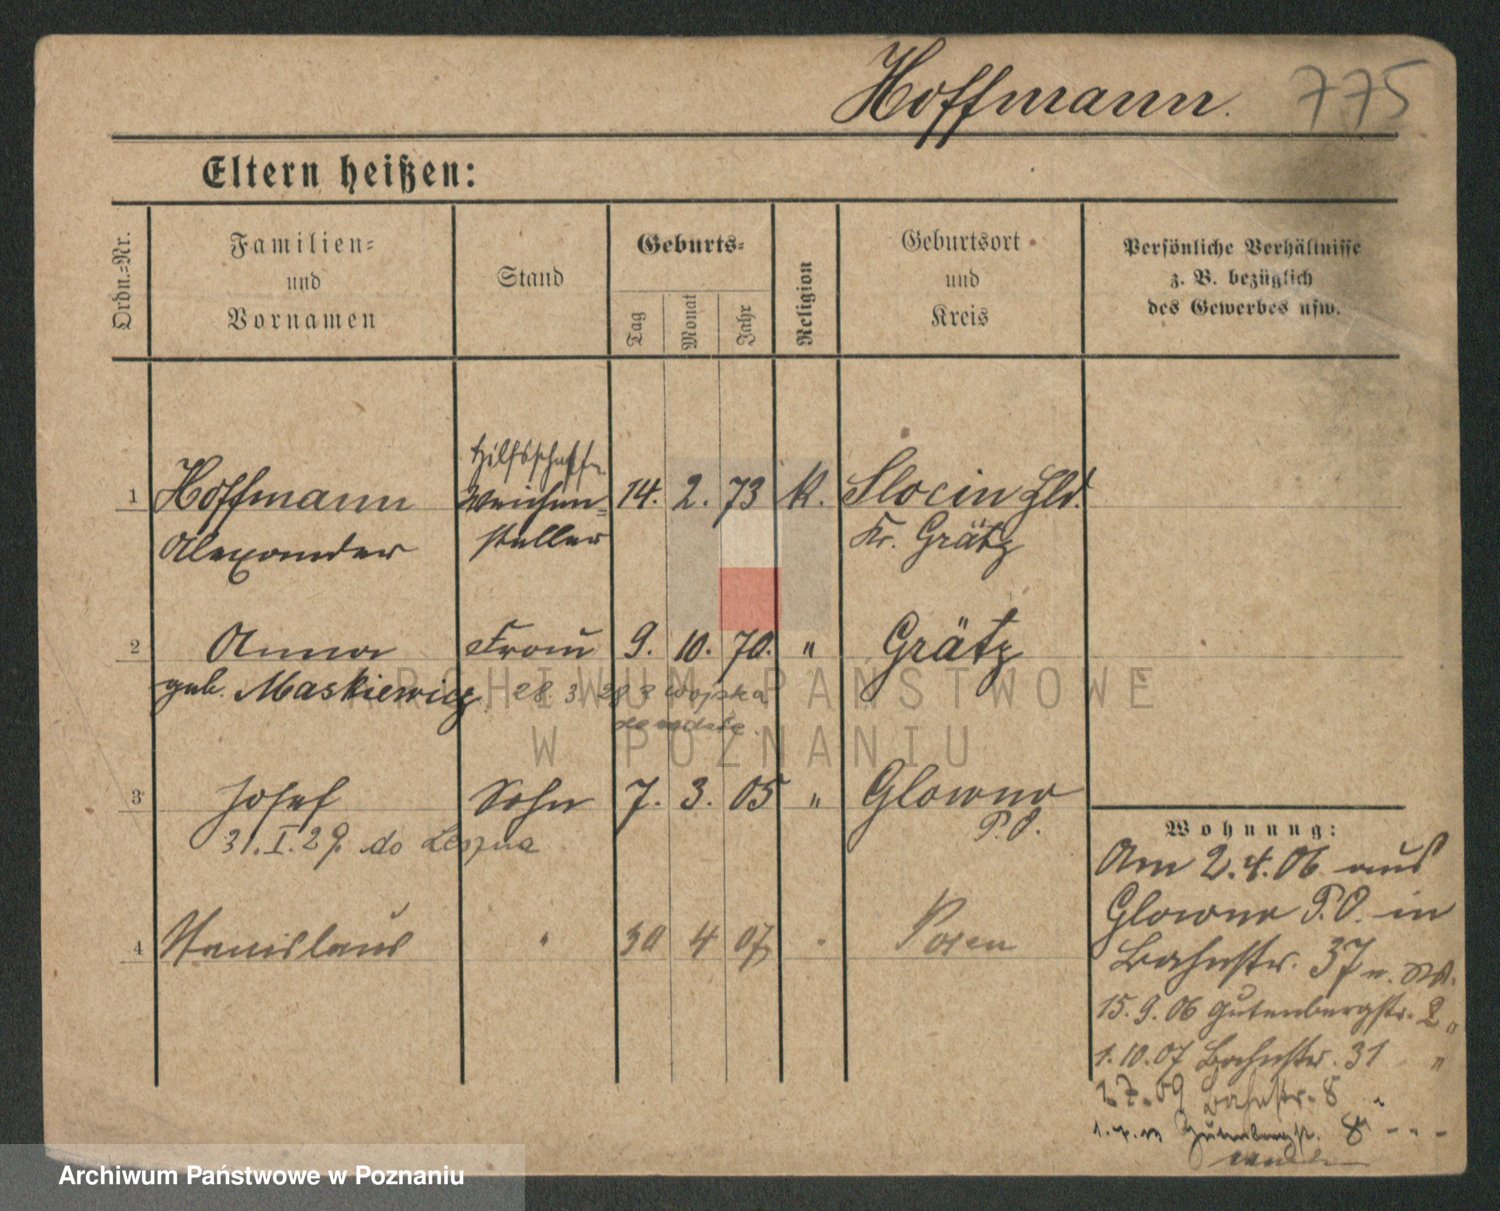 Hoffmann. 775
Eltern heißen:
Ordn.-Nr.
Familien-
und
Vornamen
Stand
Geburts-
Tag
Monat
Jahr
Religion
Geburtsort
und
Kreis
Persönliche Verhältnisse
z. B. bezüglich
des Gewerbes usw.
Hilfsschaffn.
1 Hoffmann Weichen- 14. 2. 73 k. Slocin Hld.
Alexander steller Kr. Grätz
2 Anna Frau 9. 10. 70. " Grätz
geb. Maskiewicz 28. 3 28 z wojska
3 Josef Sohn 7. 3. 05 " Glowno
P.O.
31.I.29 do Leszna
4 Stanislaus " 30 4 07 " Posen
Wohnung:
Am 2.4.06 aus
Glowno P.O. in
Bahnstr. 37
15.9.06 Gutenbergstr. 2 "
1.10.07 Bahnstr. 31 "
Bahnstr. 8 "
Gutenbergstr. 8
wenden
ARCHIWUM PAŃSTWOWE
W POZNANIU
Archiwum Państwowe w Poznaniu